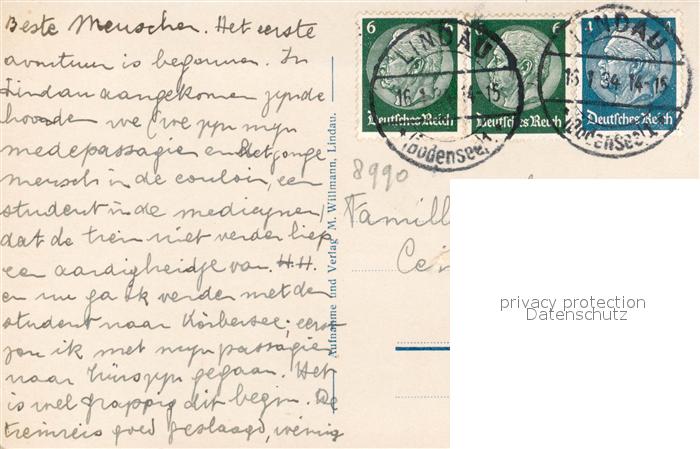 Beste Menschen. Het eerste
avontuur is begonnen. In
Lindau aangekomen zijnde
hoorden we (we zijn mijn
medepassagier en het jonge
mensch in de couloir, een
student in de medicijnen)
dat de trein niet verder liep
een aardigheidje van H.H.
en nu ga ik verder met den
student naar Körbersee; eerst
zou ik met mijn passagier
naar Zürs zijn gegaan. Het
is wel grappig dit begin. De
treinreis goed geslaagd, weinig
Aufnahme und Verlag M. Willmann, Lindau.
6
6
4
Deutsches Reich
Deutsches Reich
Deutsches Reich
LINDAU
16.1. 14-15
(Bodensee) 1
LINDAU
16.1.34. 14-15
(Bodensee) 1
8990
Famill
Cei
privacy protection
Datenschutz